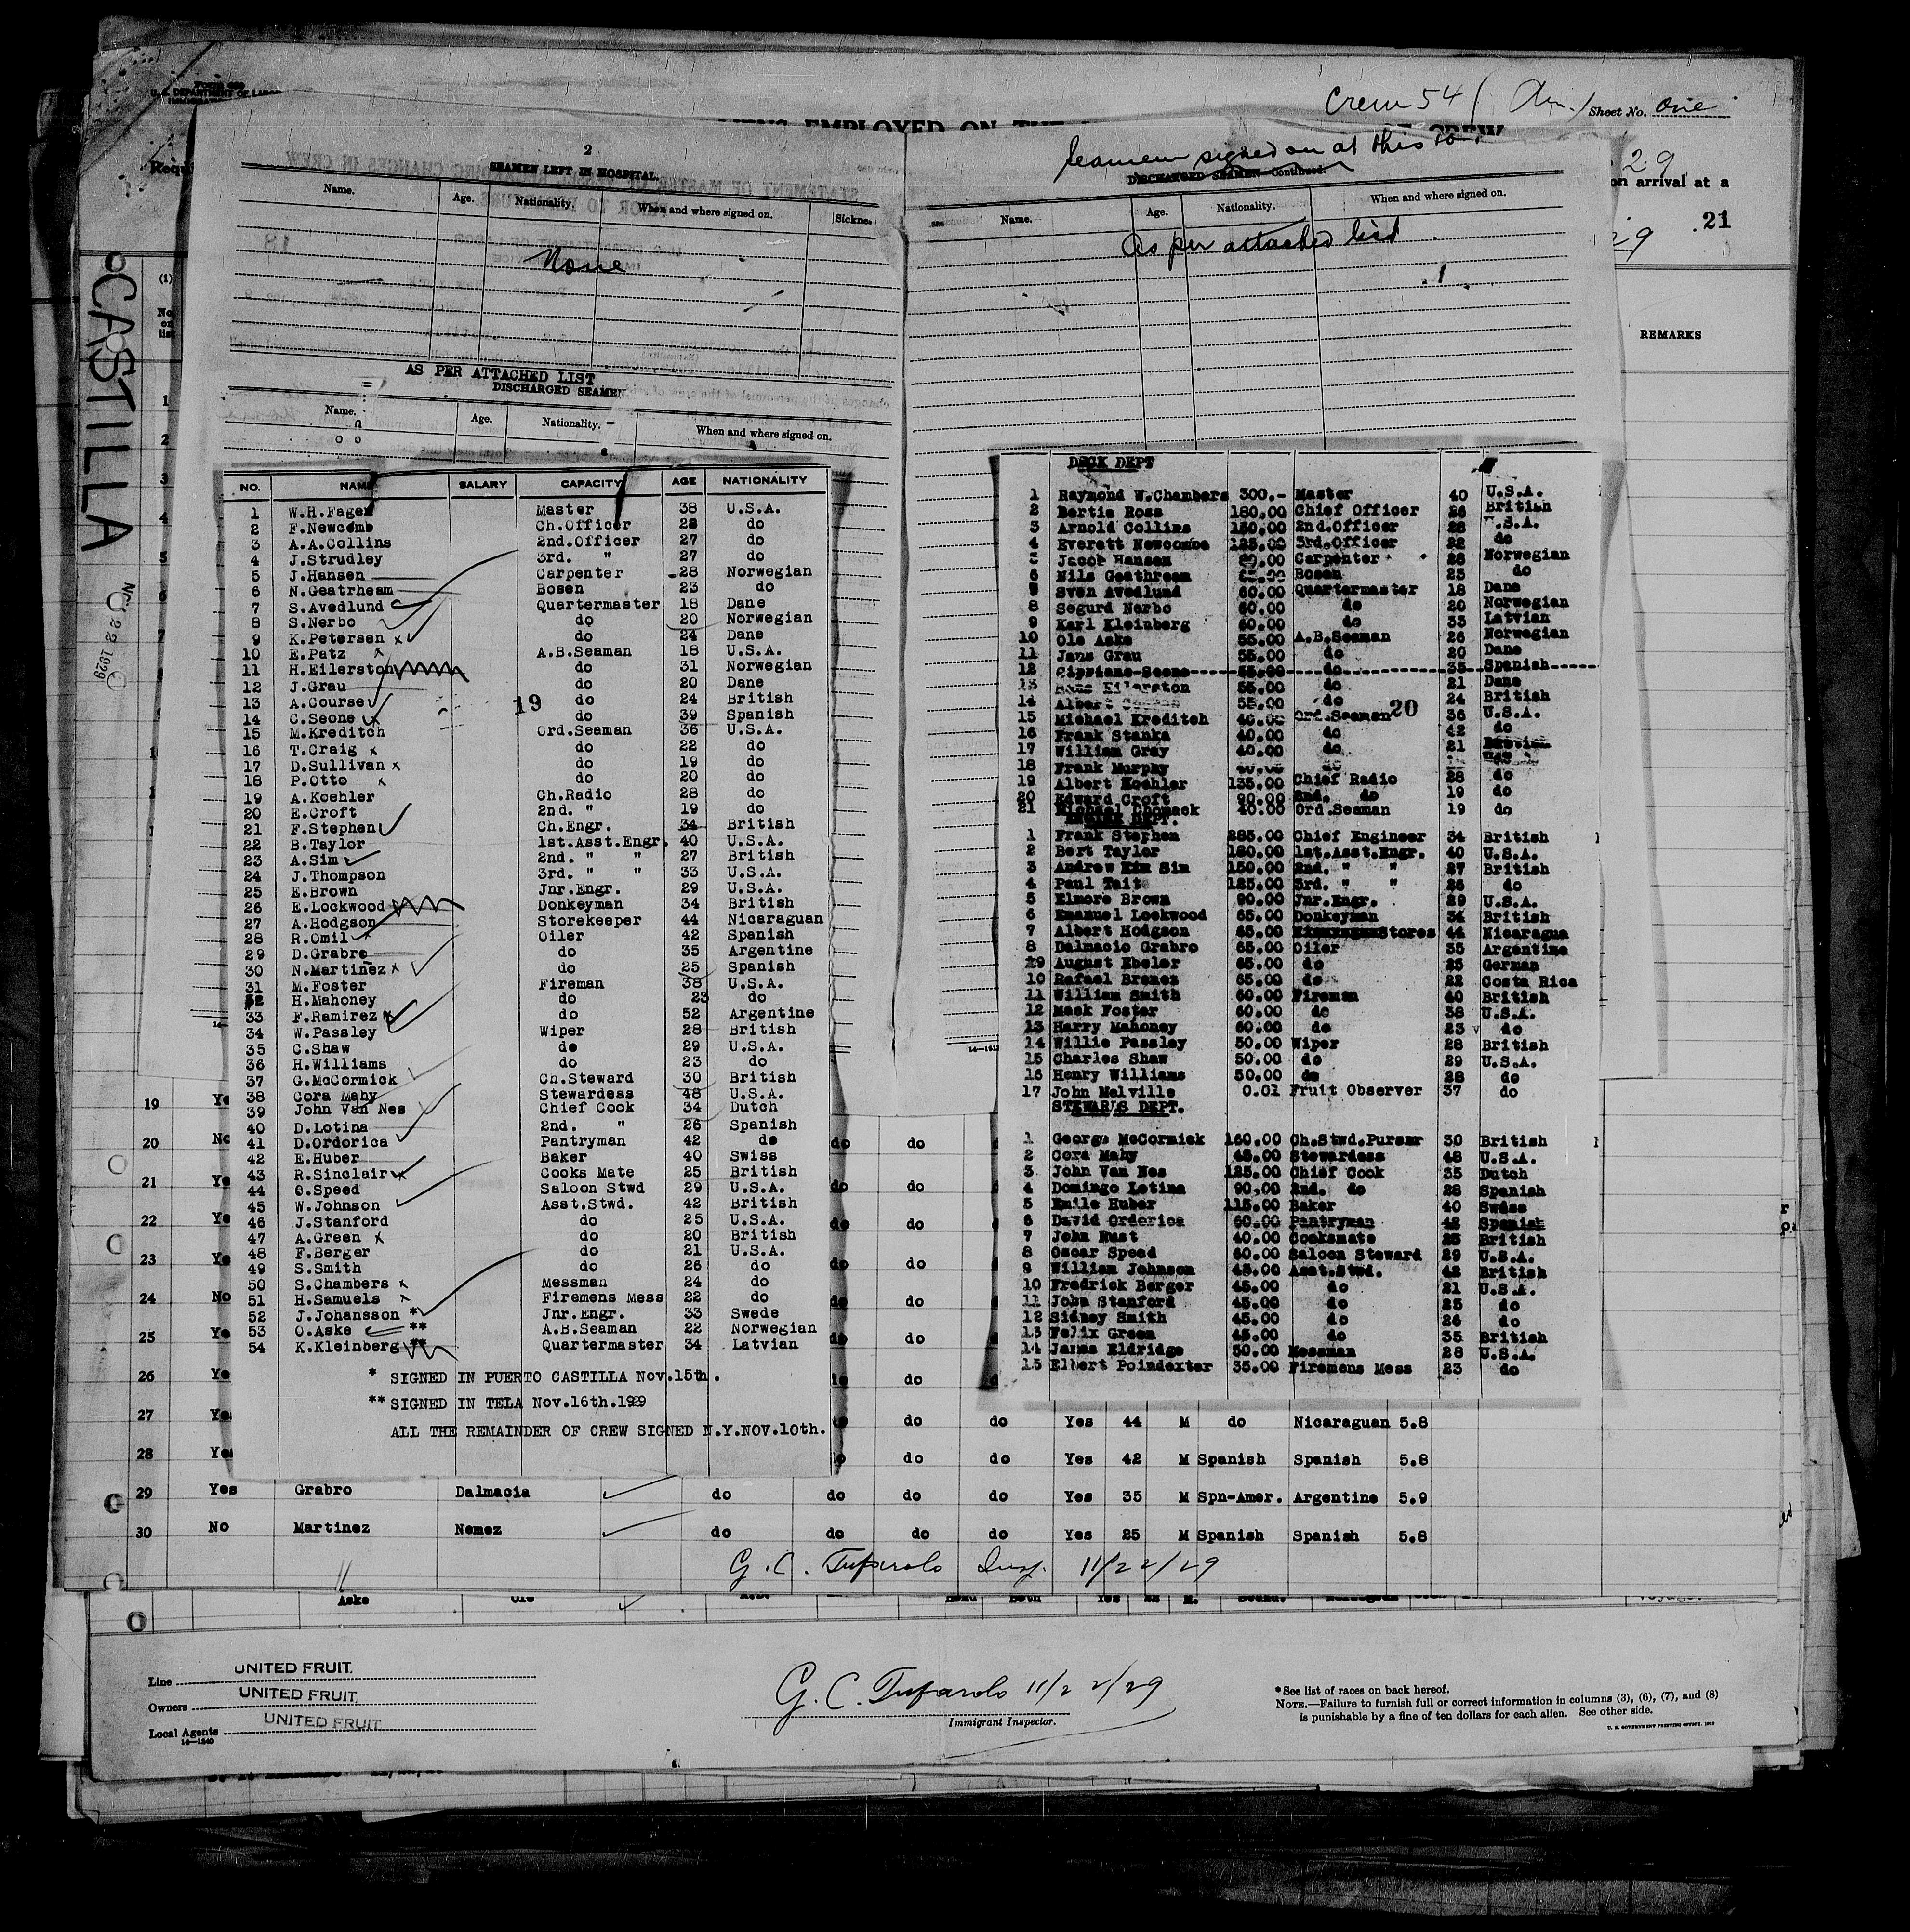 Crew 54 ( Am. ) Sheet No. One
Form 680
U. S. DEPARTMENT OF LABOR
EMPLOYED ON THE
OF CREW
29
on arrival at a
21
29
REMARKS
CASTILLA
NOV 22 1929
(1)
No. on list
2
SEAMEN LEFT IN HOSPITAL.
Name. Age. Nationality. When and where signed on. Sickne
None
AS PER ATTACHED LIST
DISCHARGED SEAMEN
Name. Age. Nationality. When and where signed on.
Seamen signed on at this
DISCHARGED SEAMEN—Continued.
Name. Age. Nationality. When and where signed on.
As per attached list
NO. NAME SALARY CAPACITY AGE NATIONALITY
1 W.H.Fagen Master 38 U.S.A.
2 F.Newcomb Ch.Officer 28 do
3 A.A.Collins 2nd.Officer 27 do
4 J.Strudley 3rd. " 27 do
5 J.Hansen Carpenter 28 Norwegian
6 N.Geatrheam Bosen 23 do
7 S.Avedlund Quartermaster 18 Dane
8 S.Nerbo do 20 Norwegian
9 K.Petersen x do 24 Dane
10 E.Patz x A.B.Seaman 18 U.S.A.
11 H.Eilerston do 31 Norwegian
12 J.Grau do 20 Dane
13 A.Course do 24 British
19
14 C.Seone x do 39 Spanish
15 M.Kreditch Ord.Seaman 36 U.S.A.
16 T.Craig x do 22 do
17 D.Sullivan x do 19 do
18 P.Otto x do 20 do
19 A.Koehler Ch.Radio 28 do
20 E.Croft 2nd. " 19 do
21 F.Stephen Ch.Engr. 34 British
22 B.Taylor 1st.Asst.Engr. 40 U.S.A.
23 A.Sim 2nd. " " 27 British
24 J.Thompson 3rd. " " 33 U.S.A.
25 E.Brown Jnr.Engr. 29 U.S.A.
26 E.Lockwood Donkeyman 34 British
27 A.Hodgson Storekeeper 44 Nicaraguan
28 R.Omil x Oiler 42 Spanish
29 D.Grabre do 35 Argentine
30 N.Martinez x do 25 Spanish
31 M.Foster Fireman 38 U.S.A.
32 H.Mahoney do 23 do
33 F.Ramirez x do 52 Argentine
34 W.Passley Wiper 28 British
35 C.Shaw do 29 U.S.A.
36 H.Williams do 23 do
37 G.McCormick Ch.Steward 30 British
38 Cora Mahy Stewardess 48 U.S.A.
39 John Van Nes Chief Cook 34 Dutch
40 D.Lotina 2nd. " 26 Spanish
41 D.Ordorica Pantryman 42 do
42 E.Huber Baker 40 Swiss
43 R.Sinclair x Cooks Mate 25 British
44 O.Speed Saloon Stwd 29 U.S.A.
45 W.Johnson Asst.Stwd. 42 British
46 J.Stanford do 25 U.S.A.
47 A.Green x do 20 British
48 F.Berger do 21 U.S.A.
49 S.Smith do 26 do
50 S.Chambers x Messman 24 do
51 H.Samuels x Firemens Mess 22 do
52 J.Johansson * Jnr.Engr. 33 Swede
53 O.Aske ** A.B.Seaman 22 Norwegian
54 K.Kleinberg ** Quartermaster 34 Latvian
* SIGNED IN PUERTO CASTILLA Nov.15th.
** SIGNED IN TELA Nov.16th.1929
ALL THE REMAINDER OF CREW SIGNED N.Y.NOV.10th.
DECK DEPT
1 Raymond W.Chambers 300.- Master 40 U.S.A.
2 Bertie Ross 180.00 Chief Officer 26 British
3 Arnold Collins 150.00 2nd.Officer 28 U.S.A.
4 Everett Newcombe 125.00 3rd.Officer 22 do
5 Jacob Hansen Carpenter 28 Norwegian
6 Nils Geathream Bosen 25 do
7 Sven Avedlund 60.00 Quartermaster 18 Dane
8 Segurd Nerbo 60.00 do 20 Norwegian
9 Karl Kleinberg 60.00 do 33 Latvian
10 Ole Aske 55.00 A.B.Seaman 26 Norwegian
11 Jans Grau 55.00 do 20 Dane
12 Cipriano Seone 55.00 do 35 Spanish
13 Hans Eilerston 55.00 do 21 Dane
14 Albert 55.00 do 24 British
15 Michael Kreditch 40.00 Ord.Seaman 36 U.S.A.
20
16 Frank Stanka 40.00 do 42 do
17 William Gray 40.00 do 21
18 Frank Murphy 40.00 do
19 Albert Koehler 135.00 Chief Radio 28 do
20 Edward Croft 90.00 2nd. do 19 do
21 Michael Chomack 40.00 Ord.Seaman 19 do
ENGINE DEPT.
1 Frank Stephen 285.00 Chief Engineer 34 British
2 Bert Taylor 180.00 1st.Asst.Engr. 40 U.S.A.
3 Andrew Kim Sim 150.00 2nd. " " 27 British
4 Paul Tait 125.00 3rd. " " 26 do
5 Elmore Brown 90.00 Jnr.Engr. 29 U.S.A.
6 Emanuel Lockwood 65.00 Donkeyman 34 British
7 Albert Hodgson 65.00 Stores 44 Nicaragua
8 Dalmacio Grabro 65.00 Oiler 35 Argentine
29 August Ebeler 65.00 do 25 German
10 Rafael Brenes 65.00 do 22 Costa Rica
11 William Smith 60.00 Fireman 40 British
12 Mack Foster 60.00 do 38 U.S.A.
13 Harry Mahoney 60.00 do 23 do
14 Willie Passley 50.00 Wiper 28 British
15 Charles Shaw 50.00 do 29 U.S.A.
16 Henry Williams 50.00 do 28 do
17 John Melville 0.01 Fruit Observer 37 do
STEWAR'S DEPT.
1 George McCormick 160.00 Ch.Stwd.Purser 30 British
2 Cora Mahy 45.00 Stewardess 48 U.S.A.
3 John Van Nes 125.00 Chief Cook 35 Dutch
4 Domingo Lotina 90,00 2nd. do 28 Spanish
5 Emile Huber 115.00 Baker 40 Swiss
6 David Orderica 60.00 Pantryman 42 Spanish
7 John Rust 40.00 Cooksmate 25 British
8 Oscar Speed 60.00 Saloon Steward 29 U.S.A.
9 William Johnson 45.00 Asst.Stwd. 42 British
10 Fredrick Berger 45.00 do 21 U.S.A.
11 John Stanford 45.00 do 25 do
12 Sidney Smith 45.00 do 26 do
13 Felix Green 45.00 do 35 British
14 James Eldridge 50.00 Messman 28 U.S.A.
15 Elbert Poindexter 35.00 Firemens Mess 23 do
19 Ye
20 No do do
21 Ye do do
22 Ye do do
23 Ye do do
24 No do do
25 Ye do do
26 Ye do
27 Yes do do Yes 44 M do Nicaraguan 5.8
28 Yes do do Yes 42 M Spanish Spanish 5.8
29 Yes Grabro Dalmacia do do do do Yes 35 M Spn-Amer. Argentine 5.9
30 No Martinez Nemez do do do do Yes 25 M Spanish Spanish 5.8
G. C. Tufarolo Insp. 11/22/29
Aske Ole
Line UNITED FRUIT.
Owners UNITED FRUIT
Local Agents UNITED FRUIT
14—1240
G. C. Tufarolo 11/22/29
Immigrant Inspector.
*See list of races on back hereof.
NOTE.—Failure to furnish full or correct information in columns (3), (6), (7), and (8)
is punishable by a fine of ten dollars for each alien. See other side.
U. S. GOVERNMENT PRINTING OFFICE